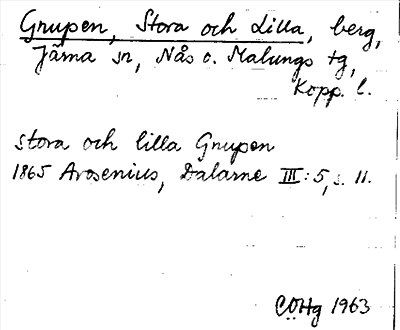 Gnupen, Stora och Lilla, berg,
Järna sn, Nås o. Malungs tg,
Kopp. l.
stora och lilla Gnupen
1865 Arosenius, Dalarne III:5, s. 11.
CÖHg 1963